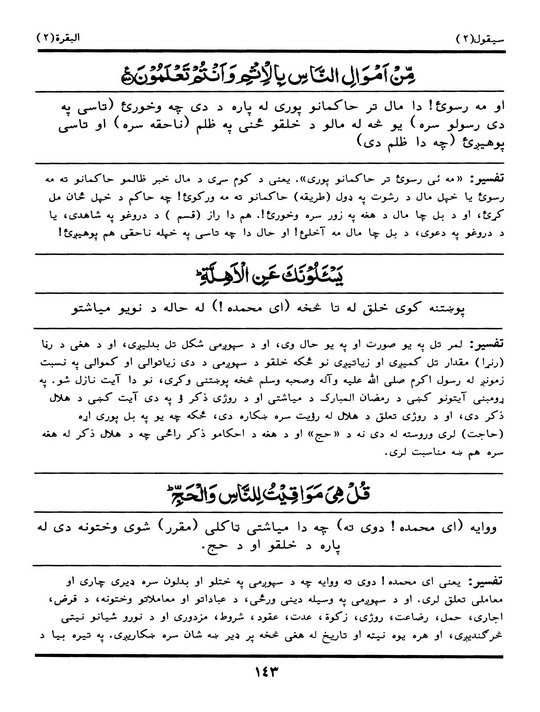 سيقول(٢)
البقرة(٢)
مِّنْ اَمْوَالِ النَّاسِ بِالْاِثْمِ وَاَنْتُمْ تَعْلَمُوْنَ
او مه رسوئ! دا مال تر حاكمانو پورى له پاره د دى چه وخورئ (تاسى په
دى رسولو سره) يو څه له مالو د خلقو ځنى په ظلم (ناحقه سره) او تاسى
پوهيږئ (چه دا ظلم دى)
تفسير: «مه ئى رسوئ تر حاكمانو پورى». يعنى د كوم سړى د مال خبر ظالمو حاكمانو ته مه
رسوئ يا خپل مال د رشوت په ډول (طريقه) حاكمانو ته مه وركوئ! چه حاكم د خپل ځان مل
كړئ، او د بل چا مال د هغه په زور سره وخورئ!. هم دا راز (قسم) د دروغو په شاهدى، يا
د دروغو په دعوى، د بل چا مال مه آخلئ! او حال دا چه تاسى په خپله ناحقى هم پوهيږئ!
يَسْـَٔلُوْنَكَ عَنِ الْاَهِلَّةِ ؕ
پوښتنه كوى خلق له تا څخه (اى محمده!) له حاله د نويو مياشتو
تفسير: لمر تل په يو صورت او په يو حال وى، او د سپوږمى شكل تل بدليږى، او د هغى د رڼا
(رنړا) مقدار تل كميږى او زياتيږى نو ځكه خلقو د سپوږمى د دى زياتوالى او كموالى په نسبت
زمونږ له رسول اكرم صلى الله عليه وآله وصحبه وسلم څخه پوښتنى وكړى، نو دا آيت نازل شو. په
ړومبنى آيتونو كښى د رمضان المبارك د مياشتى او د روژى ذكر ؤ په دى آيت كښى د هلال
ذكر دى، او د روژى تعلق د هلال له رؤيت سره ښكاره دى، ځكه چه يو په بل پورى اړه
(حاجت) لرى وروسته له دى نه د «حج» او د هغه د احكامو ذكر راځى چه د هلال ذكر له هغه
سره هم ښه مناسبت لرى.
قُلْ هِىَ مَوَاقِيْتُ لِلنَّاسِ وَالْحَجِّ ؕ
ووايه (اى محمده! دوى ته) چه دا مياشتى ټاكلى (مقرر) شوى وختونه دى له
پاره د خلقو او د حج.
تفسير: يعنى اى محمده! دوى ته ووايه چه د سپوږمى په ختلو او بدلون سره ډيرى چارى او
معاملى تعلق لرى. او د سپوږمى په وسيله دينى ورځى، د عباداتو او معاملاتو وختونه، د قرض،
اجارى، حمل، رضاعت، روژى، زكوة، عدت، عقود، شروط، مزدورى او د نورو شيانو نيتى
څرګنديږى، او هره يوه نيټه او تاريخ له هغى څخه پر ډير ښه شان سره ښكاريږى. په تيره بيا د
١٤٣